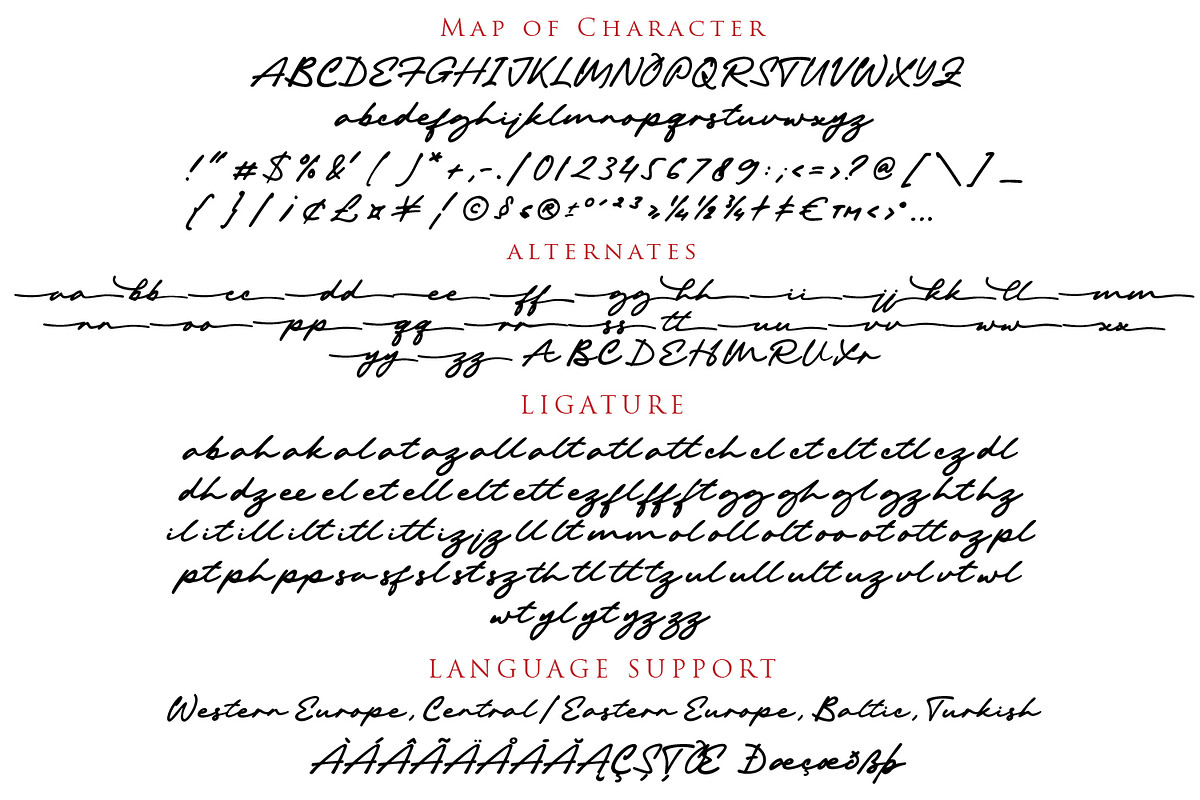 Map of Character
ABCDEFGHIJKLMNOPQRSTUVWXYZ
abcdefghijklmnopqrstuvwxyz
! " # $ % & ' ( ) * + , - . / 0 1 2 3 4 5 6 7 8 9 : ; < = > ? @ [ \ ] _
{ } | ¡ ¢ £ ¤ ¥ ¦ © § « ® ± º ¹ ² ³ » ¼ ½ ¾ † ‡ € ™ ‹ › • …
ALTERNATES
aa bb cc dd ee ff gg hh ii jj kk ll mm
nn oo pp qq rr ss tt uu vv ww xx
yy zz A B C D E H M R U X r
LIGATURE
ab ah ak al at az all alt atl att ch cl ct clt ctl cz dl
dh dz ee el et ell elt ett ez fl ff ft gg gh gl gz ht hz
il it ill ilt itl itt iz jz ll lt mm ol oll olt oo ot ott oz pl
pt ph pp sa sf sl st sz th tl tt tz ul ull ult uz vl vt wl
wt yl yt yz zz
LANGUAGE SUPPORT
Western Europe, Central / Eastern Europe, Baltic, Turkish
ÀÁÂÃÄÅĀĂĄÇŞŢŒ Đæçœðßþ